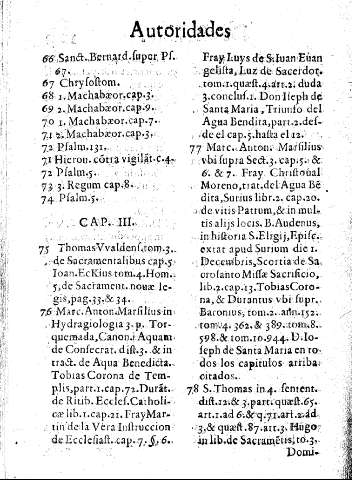 Autoridades
66 Sanct. Bernard. super Ps.
67.
67 Chrysostom.
68 1. Machabæor. cap. 3.
69 2. Machabæor. cap. 9.
70 1. Machabæor. cap. 7.
71 2. Machabæor. cap. 3.
72 Psalm. 131.
71 Hieron. cõtra vigilãt. c. 4.
72 Psalm. 5.
73 3. Regum cap. 8.
74 Psalm. 5.
CAP. III.
75 Thomas Vvaldens. tom. 3.
de Sacramentalibus cap. 5
Ioan. Eckius tom. 4. Hom.
5. de Sacrament. nouæ le-
gis, pag. 33. & 34.
76 Marc. Anton. Marsilius in
Hydragiologia 3. p. Tor-
quemada, Canon. i Aquam
de Consecrat. dist. 3. & in
tract. de Aqua Benedicta.
Tobias Corona de Tem-
plis, part. 1. cap. 72. Durãt.
de Ritib. Eccles. Catholi-
cæ lib. 1. cap. 21. Fray Mar-
tin de la Vera Instruccion
de Ecclesiast. cap. 7. §. 6.
Fray Luys de S. Iuan Euan
gelista, Luz de Sacerdot.
tom. 1. quæst. 4. art. 2. duda
3. conclus. 1. Don Ioseph de
Santa Maria, Triunfo del
Agua Bendita, part. 2. des-
de el cap. 5. hasta el 12.
77 Marc. Anton. Marsilius
vbi supra Sect. 3. cap. 5. &
6. & 7. Fray Christoual
Moreno, trat. del Agua Bẽ
dita, Surius lib. 2. cap. 20.
de vitis Patrum, & in mul-
tis alijs locis. B. Audenus,
in historia S. Elegij, Episc.
extat apud Surium die 1.
Decembris, Scortia de Sa-
crosanto Missæ Sacrificio,
lib. 2. cap. 13. Tobias Coro-
na, & Durantus vbi supr.
Baronius, tom. 2. ann. 152.
tom. 4. 362. & 389. tom. 8.
598. & tom. 10. 944. D. Io-
seph de Santa Maria en to-
dos los capitulos arriba
citados.
78 S. Thomas in 4. sentent.
dist. 12. & 3. part. quæst. 65.
art. 1. ad 6. & q. 71. art. 2. ad
3. & quæst. 87. art. 3. Hugo
in lib. de Sacramẽtis, to. 3.
Domi-